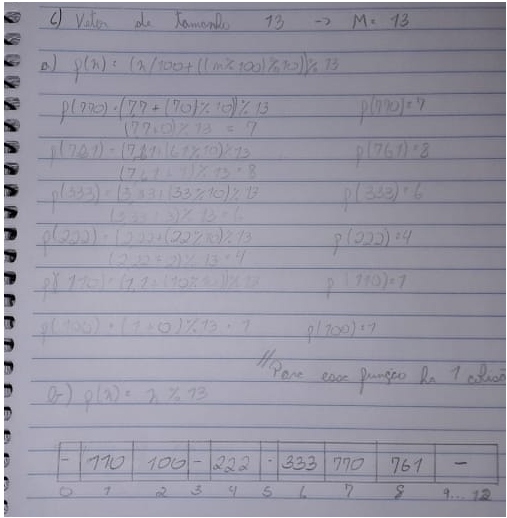 c) Vetor de tamanho 13 -> M = 13
a) p(x) = (x/100 + ((x%100)%10))%13
p(770) = (7,7 + (70)%10)%13 p(770) = 7
(7,7+0)%13 = 7
p(761) = (7,61 + (61%10)%13 p(761) = 8
(7,61 + 1)%13 = 8
p(333) = (3,33 + (33%10)%13 p(333) = 6
(3,33 + 3)%13 = 6
p(222) = (2,22 + (22%10)%13 p(222) = 4
(2,22 + 2)%13 = 4
p(110) = (1,1 + (10%10))%13 p(110) = 1
p(100) = (1+0)%13 = 1 p(100) = 1
// Para essa função há 1 colisão
b) p(x) = x % 13
- 110 100 - 222 - 333 770 761 -
0 1 2 3 4 5 6 7 8 9...12